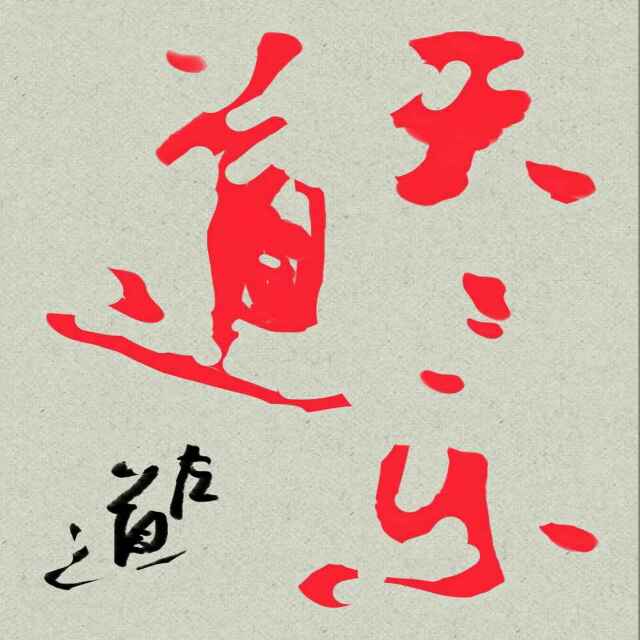 天乐
道
左道